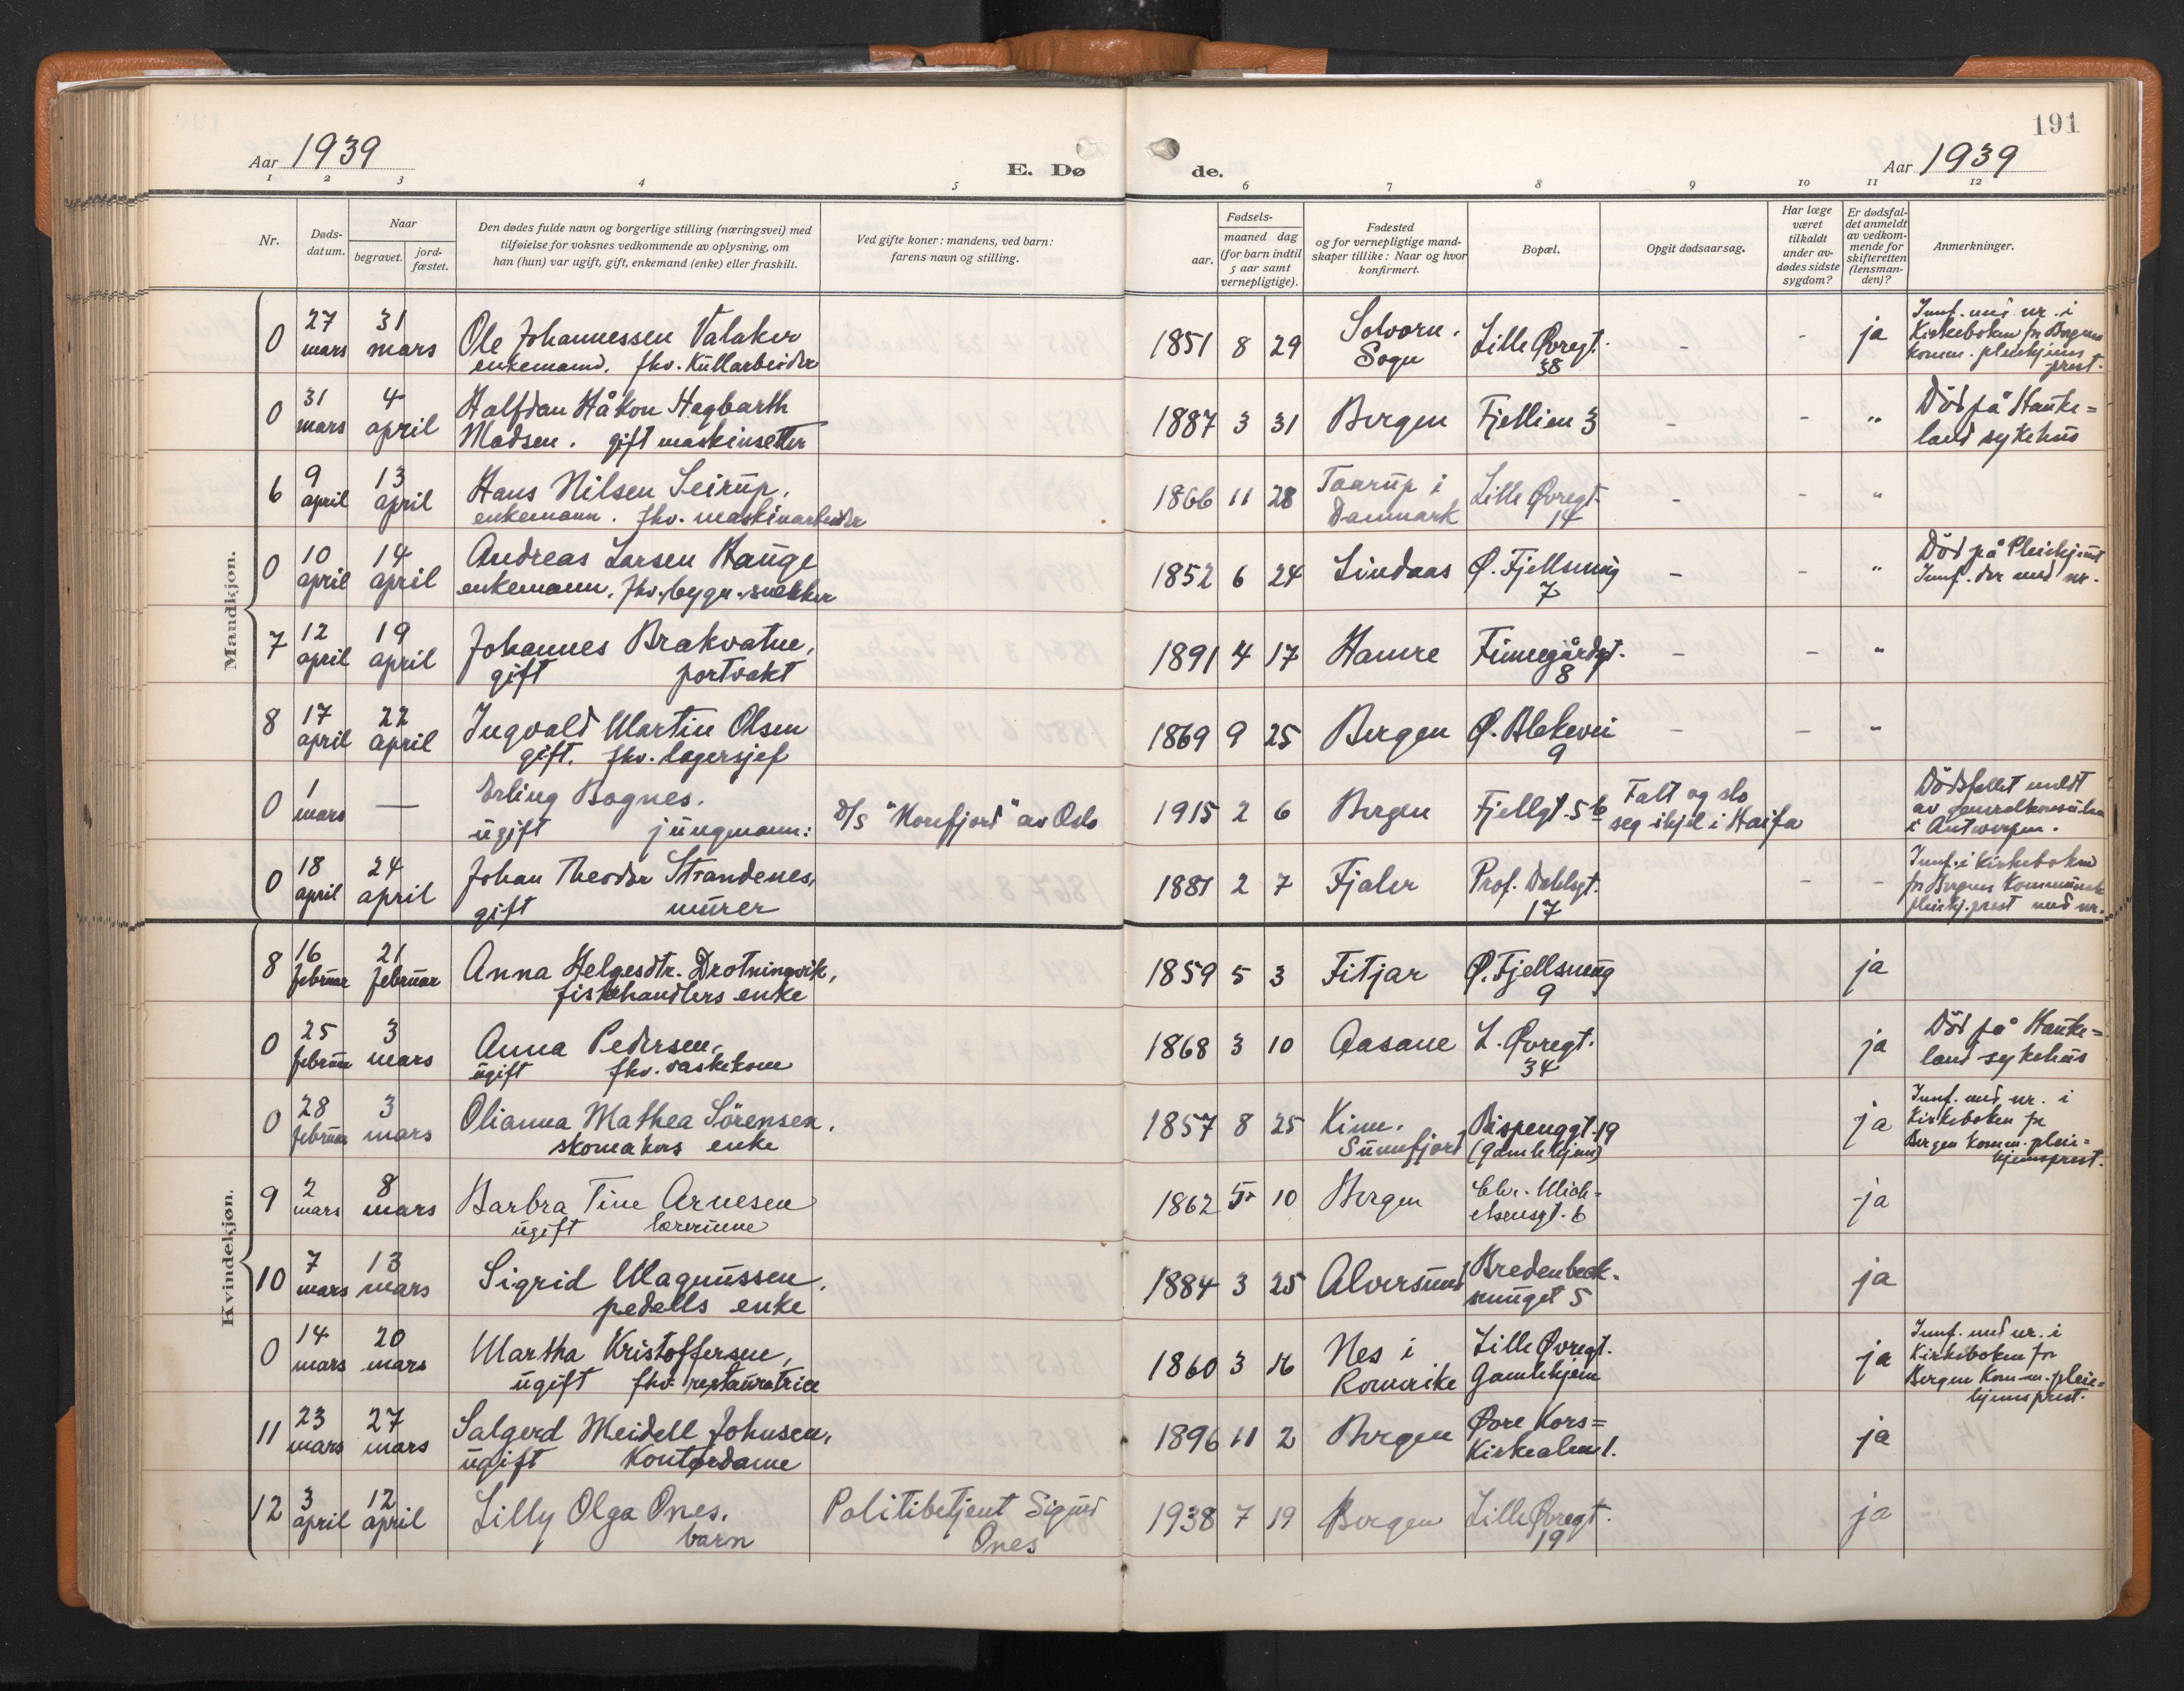 191
Aar 1939
E. Dø
de.
Aar 1939
1 2 3 4 5 6 7 8 9 10 11 12
Nr.
Døds-
datum.
Naar
begravet.
jord-
fæstet.
Den dødes fulde navn og borgerlige stilling (næringsvei) med
tilføielse for voksnes vedkommende av oplysning, om
han (hun) var ugift, gift, enkemand (enke) eller fraskilt.
Ved gifte koner: mandens, ved barn:
farens navn og stilling.
Fødsels-
aar.
maaned dag
(for barn indtil
5 aar samt
vernepligtige).
Fødested
og for vernepligtige mand-
skaper tillike: Naar og hvor
konfirmert.
Bopæl.
Opgit dødsaarsag.
Har læge
været
tilkaldt
under av-
dødes sidste
sygdom?
Er dødsfal-
det anmeldt
av vedkom-
mende for
skifteretten
(lensman-
den)?
Anmerkninger.
Mandkjøn.
0 27 mars 31 mars Ole Johannessen Valaker
enkemand. fhv. Kullarbeider
1851 8 29 Solvorn. Sogn Lille Øvregt. 38 - - ja
Innf. med nr. i
Kirkeboken for Bergens
komm. pleiehjems
prest.
0 31 mars 4 april Halfdan Håkon Hagbarth
Madsen. gift maskinsetter
1887 3 31 Bergen Fjellien 3 - - "
Död på Hauke=
land sykehus
6 9 april 13 april Hans Nilsen Seirup,
enkemann. fhv. maskinarbeider
1866 11 28 Taarup i Danmark Lille Øvregt. 14 - - "
0 10 april 14 april Andreas Larsen Hauge
enkemann, fhv. bygn.snekker
1852 6 24 Lindaas Ø. Fjellsmug 7 - - "
Död på Pleiehjemmet
Innf. der med nr.
7 12 april 19 april Johannes Brakvatne,
gift portvakt
1891 4 17 Hamre Finnegårdgt. 8 - - "
8 17 april 22 april Ingvald Martin Olsen
gift. fhv. lagersjef
1869 9 25 Bergen Ø. Blekevei 9 - - "
0 1 mars — Erling Bognes.
ugift jungmann:
D/S "Norefjord" av Oslo
1915 2 6 Bergen Fjellgt. 5 b
Falt og slo
seg ihjel i Haifa
Dödsfallet meldt
av generalkonsulen
i Antwerpen.
0 18 april 24 april Johan Theodor Strandenes,
gift murer
1881 2 7 Fjaler Prof. Dahlsgt. 17 - -
Innf. i Kirkeboken
for Bergens Kommunale
pleiehj.prest med nr.
Kvindekjøn.
8 16 februar 21 februar Anna Helgesdtr. Drotningsvik,
fiskehandlers enke
1859 5 3 Fitjar Ø. Fjellsmug 9 ja
0 25 februar 3 mars Anna Pedersen,
ugift fhv. vaskekone
1868 3 10 Aasane L. Øvregt. 34 ja
Död på Hauke=
land sykehus
0 28 februar 3 mars Olianna Mathea Sörensen.
skomakers enke
1857 8 25 Kinn. Sunnfjord Bispenggt. 19
(Gamlehjem) ja
Innf. med nr. i
Kirkeboken for
Bergen komm. pleie=
hjemsprest.
9 2 mars 8 mars Barbra Tine Arnesen
ugift lærerinne
1862 5 10 Bergen Chr. Mich=
elsensgt. 6 ja
10 7 mars 13 mars Sigrid Magnussen.
pedells enke
1884 3 25 Alversund Bredenbeck.
smuget 5 ja
0 14 mars 20 mars Martha Kristoffersen,
ugift fhv. restauratrice
1860 3 16 Nes i Romerike Lille Øvregt.
Gamlehjem ja
Innf. med nr. i
Kirkeboken for
Bergen Komm. pleie=
hjemsprest.
11 23 mars 27 mars Salgerd Meidell Johnsen,
ugift Kontordame
1896 11 2 Bergen Øvre Kors=
Kirkealm. 1. ja
12 3 april 12 april Lilly Olga Ones.
barn
Politibetjent Sigurd
Ones
1938 7 19 Bergen Lille Øvregt. 19 ja